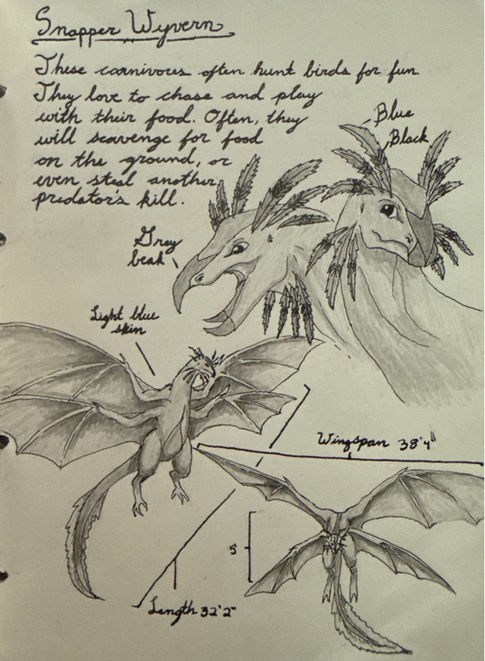 Snapper Wyvern
These carnivores often hunt birds for fun.
They love to chase and play
with their food. Often, they
will scavenge for food
on the ground, or
even steal another
predator's kill.
Blue
Black
Grey
beak
Light blue
skin
Wingspan 38'4"
5'
Length 32'2"